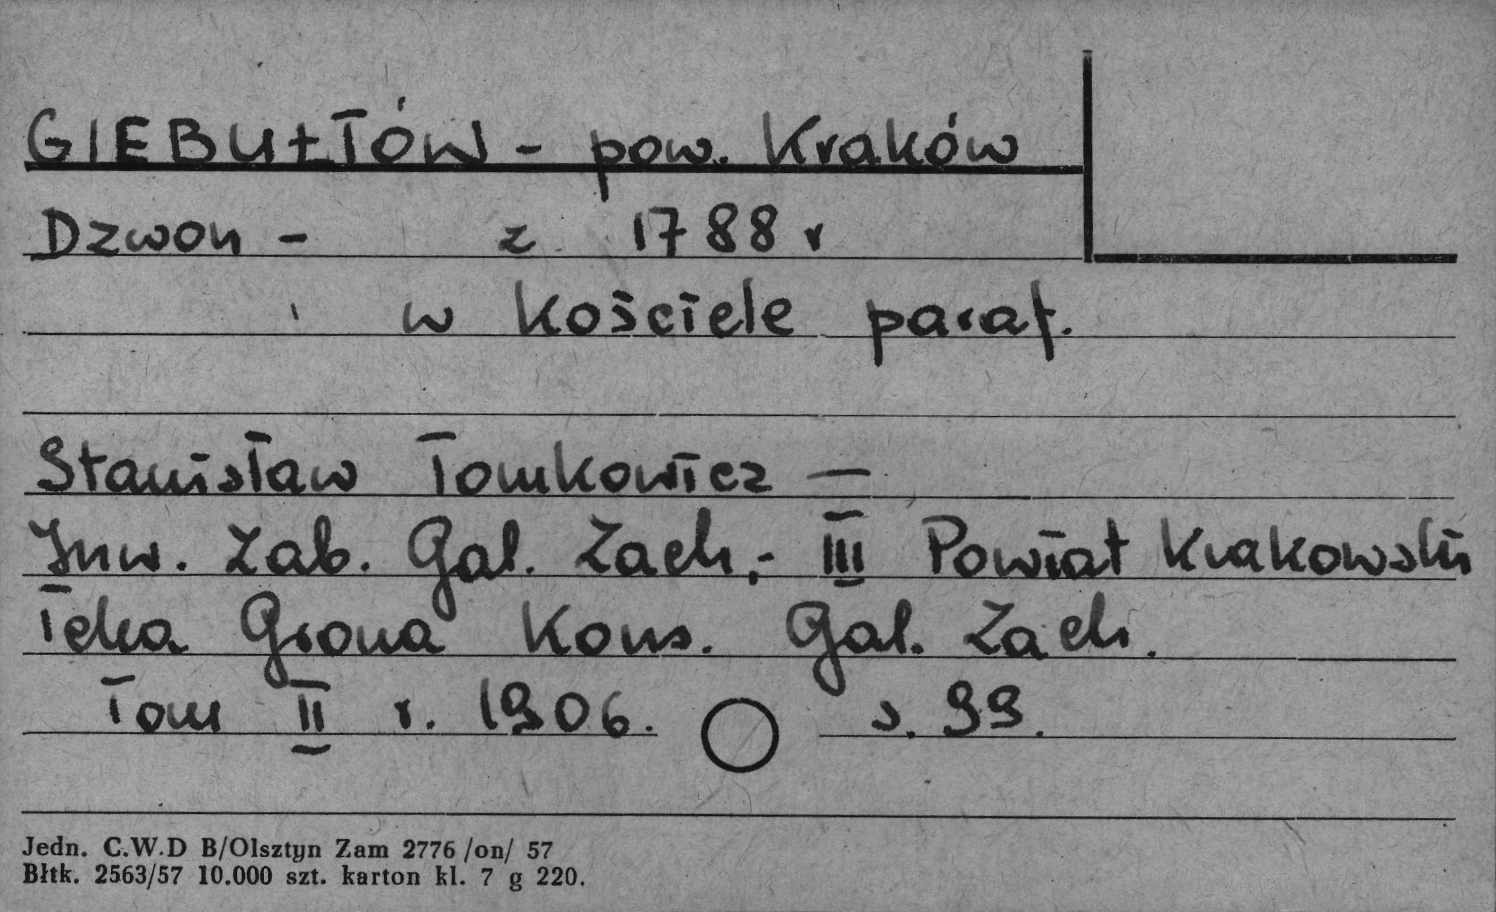 GIEBUŁTÓW - pow. Kraków
Dzwon - z 1788 r
w kościele paraf.
Stanisław Tomkowicz —
Inw. Zab. Gal. Zach. - III Powiat Krakowski
Teka Grona Kons. Gal. Zach.
Tom II r. 1906. s. 99.
Jedn. C.W.D B/Olsztyn Zam 2776 /on/ 57
Błtk. 2563/57 10.000 szt. karton kl. 7 g 220.